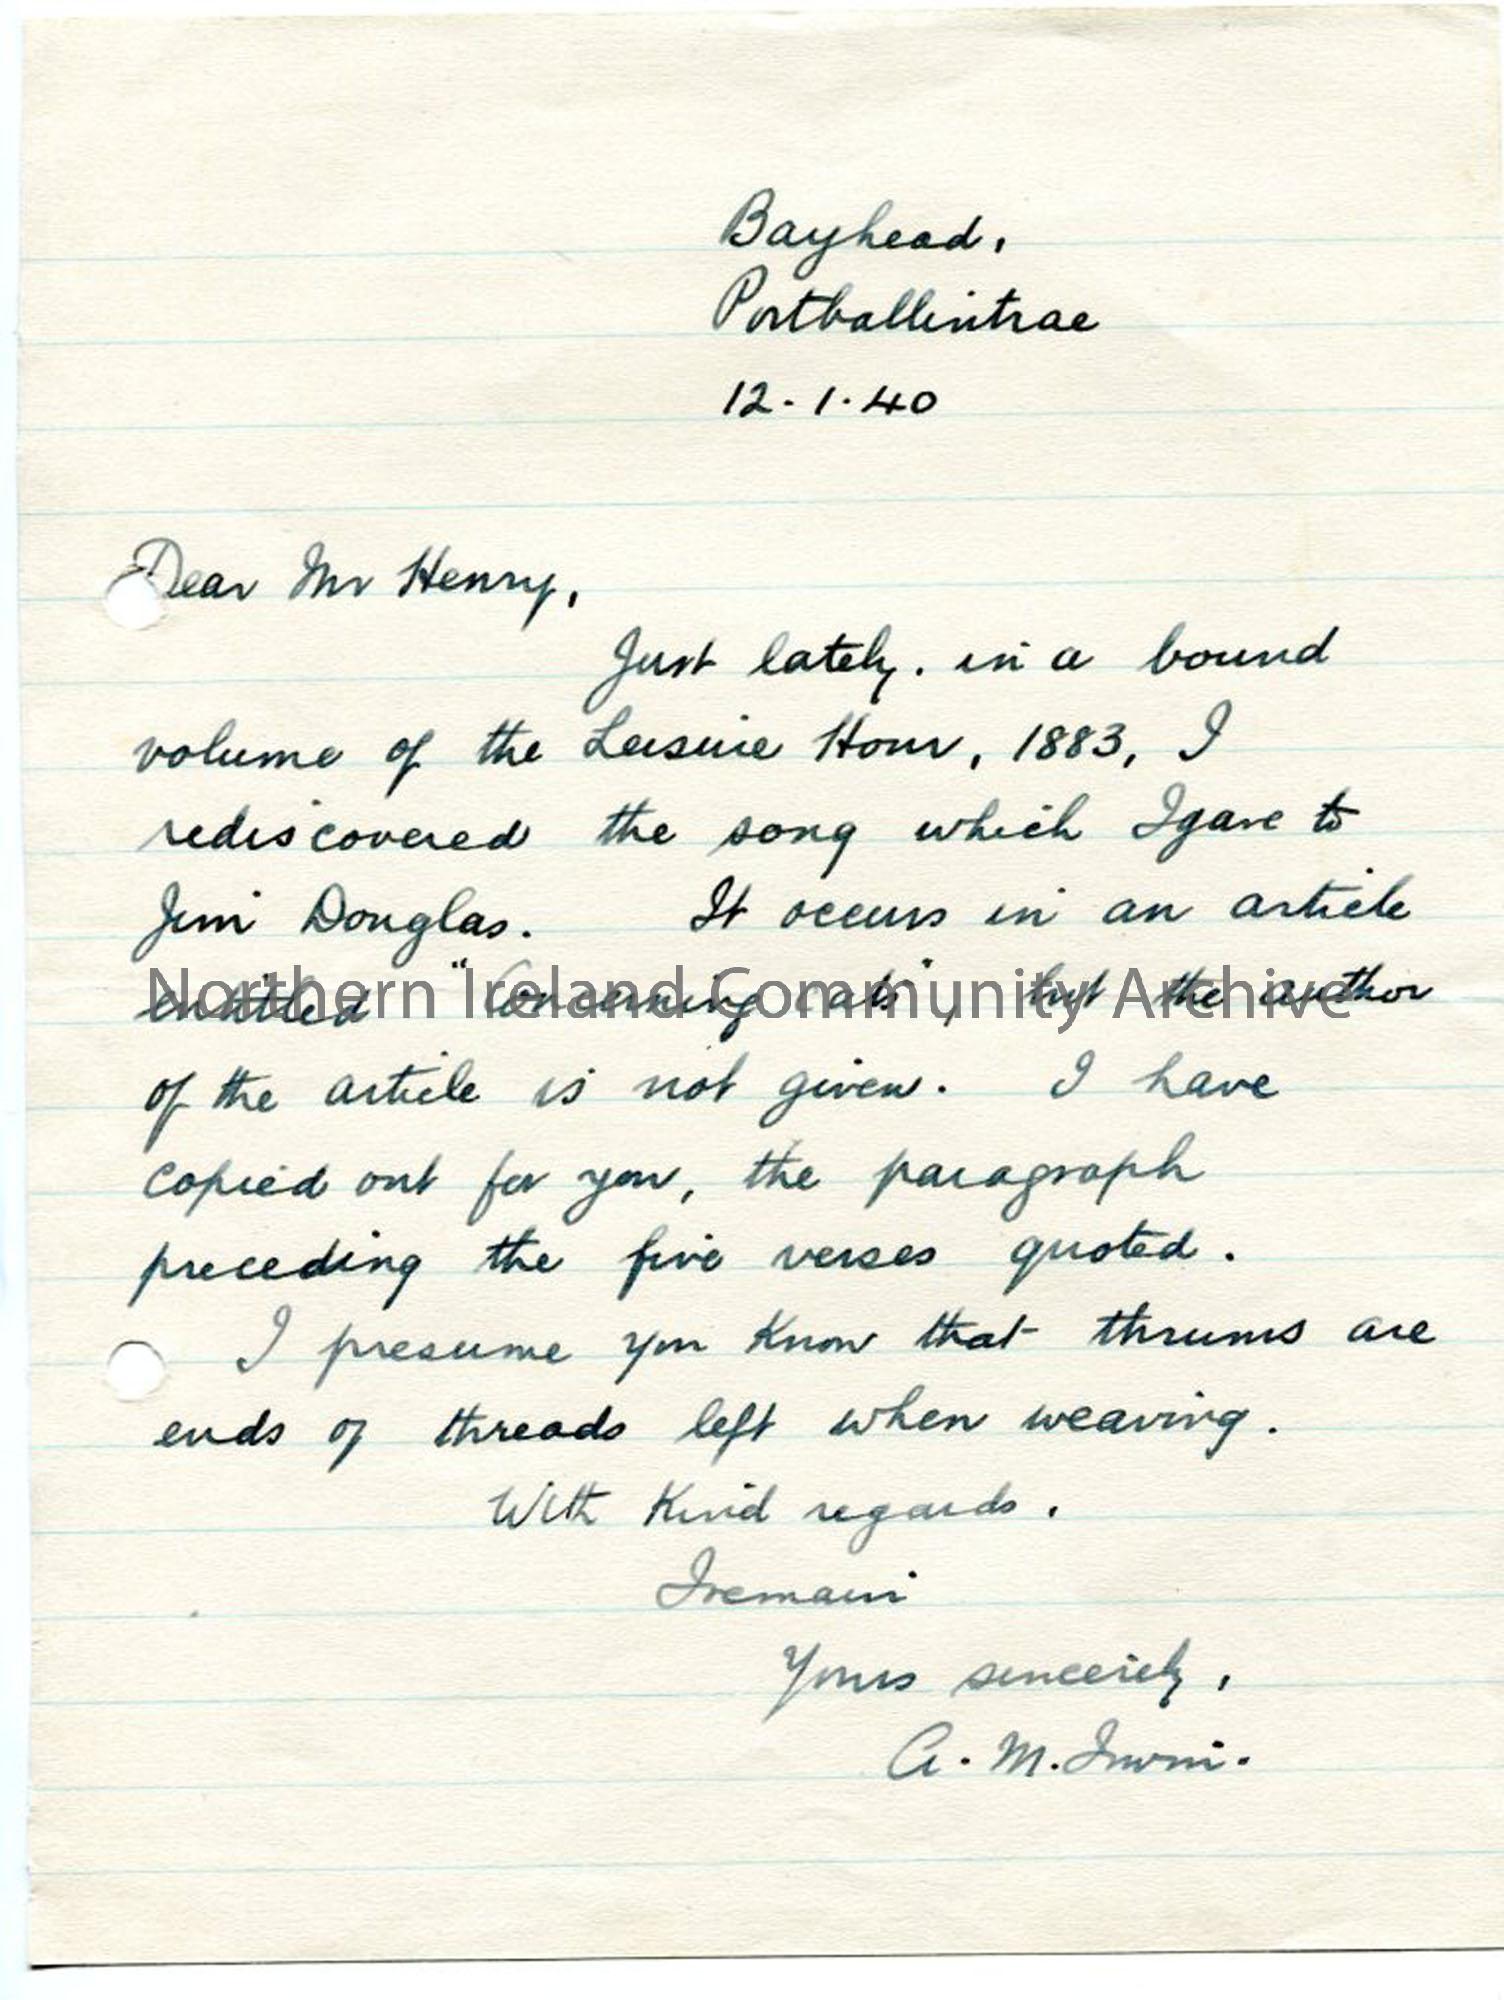 Bayhead,
Portballintrae
12.1.40
Dear Mr Henry,
Just lately, in a bound
volume of the Leisure Hour, 1883, I
rediscovered the song which I gave to
Jim Douglas. It occurs in an article
entitled "Concerning cats", but the author
Northern Ireland Community Archive
of the article is not given. I have
copied out for you, the paragraph
preceding the five verses quoted.
I presume you know that thrums are
ends of threads left when weaving.
With kind regards,
I remain
Yours sincerely,
A. M. Irwin.